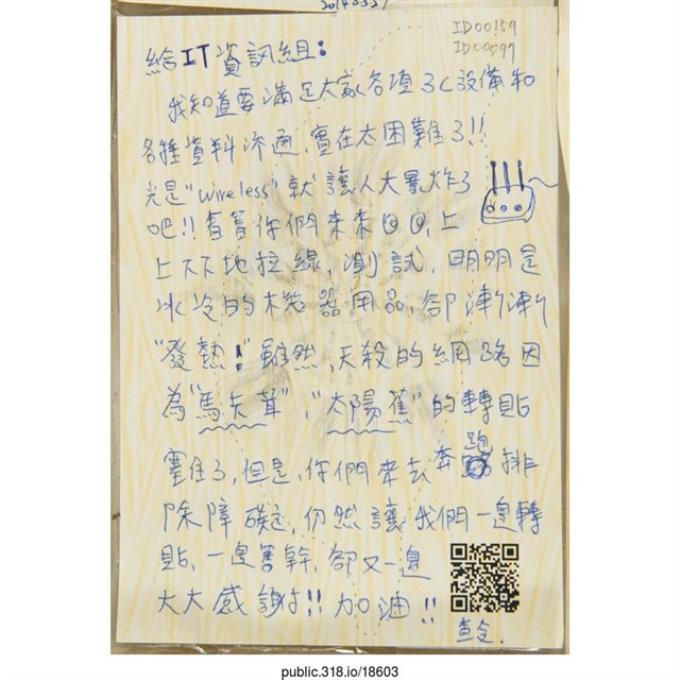 20140327
ID00159
ID00597
給IT資訊組:
我知道要滿足大家各項3C設備和
各種資料流通,實在太困難了!!
光是"wireless"就讓人大暴炸了
吧!!看著你們來來回回,上
上下下地拉線,測試,明明是
冰冷的機器用品,卻漸漸
"發熱!"雖然,天殺的網路因
為"馬矢茸","太陽蕉"的轉貼
塞住了,但是,你們來去奔跑排
除障礙,仍然讓我們一邊轉
貼,一邊罵幹,卻又一邊
大大感謝!!加油!!
public.318.io/18603